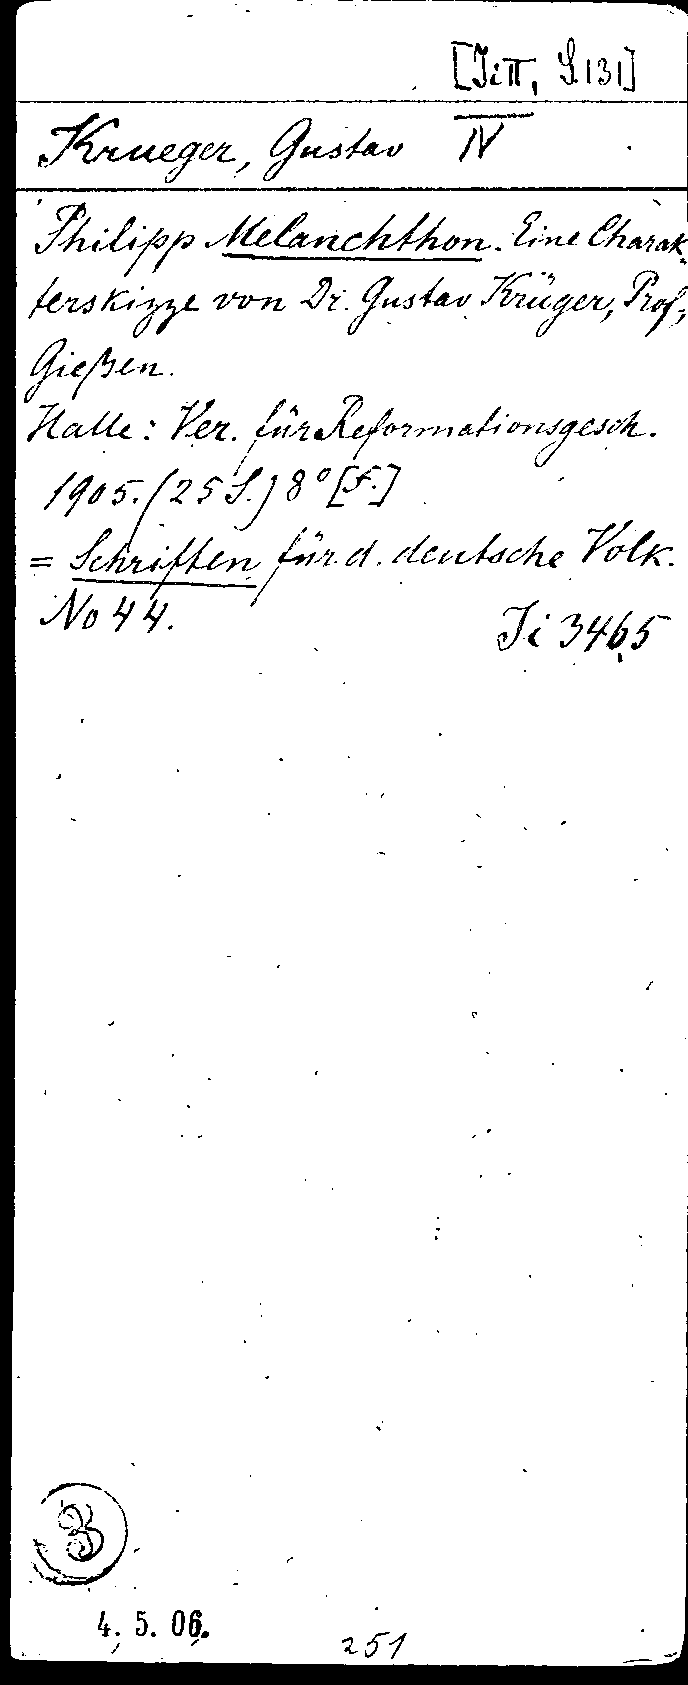 [Ji II, S. 131]
Krueger, Gustav IV
Philipp Melanchthon. Eine Charak-
terskizze von Dr. Gustav Krüger, Prof.,
Gießen.
Halle: Ver. für Reformationsgesch.
1905. (25 S.) 8° [f.]
= Schriften für d. deutsche Volk.
No 44.
Ji 3465
3
4. 5. 06.
251